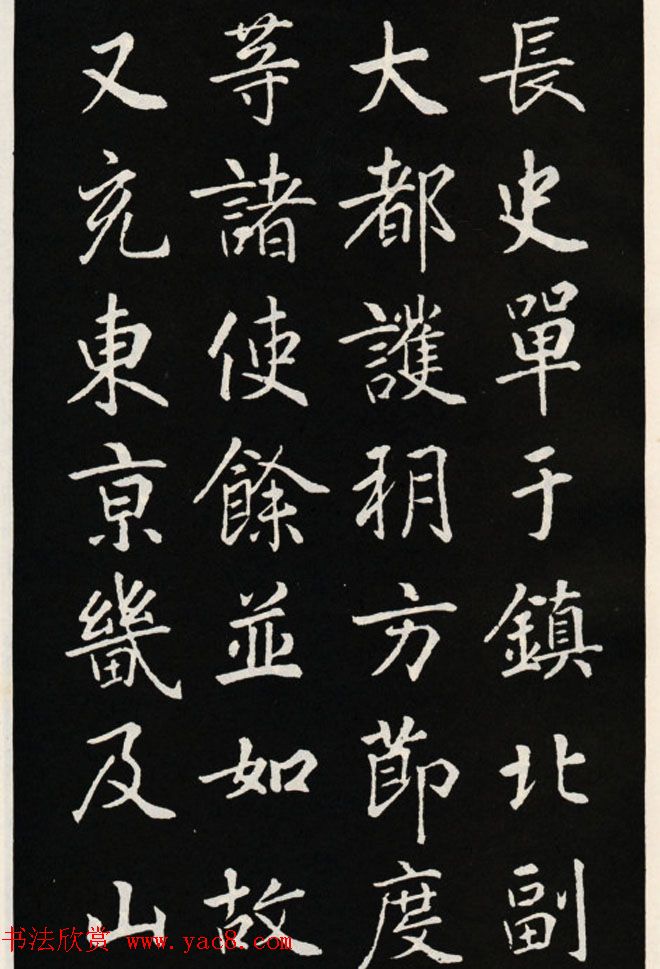 長史單于鎮北副
大都護朔方節度
等諸使餘並如故
又充東京畿及山
书法欣赏 www.yac8.com